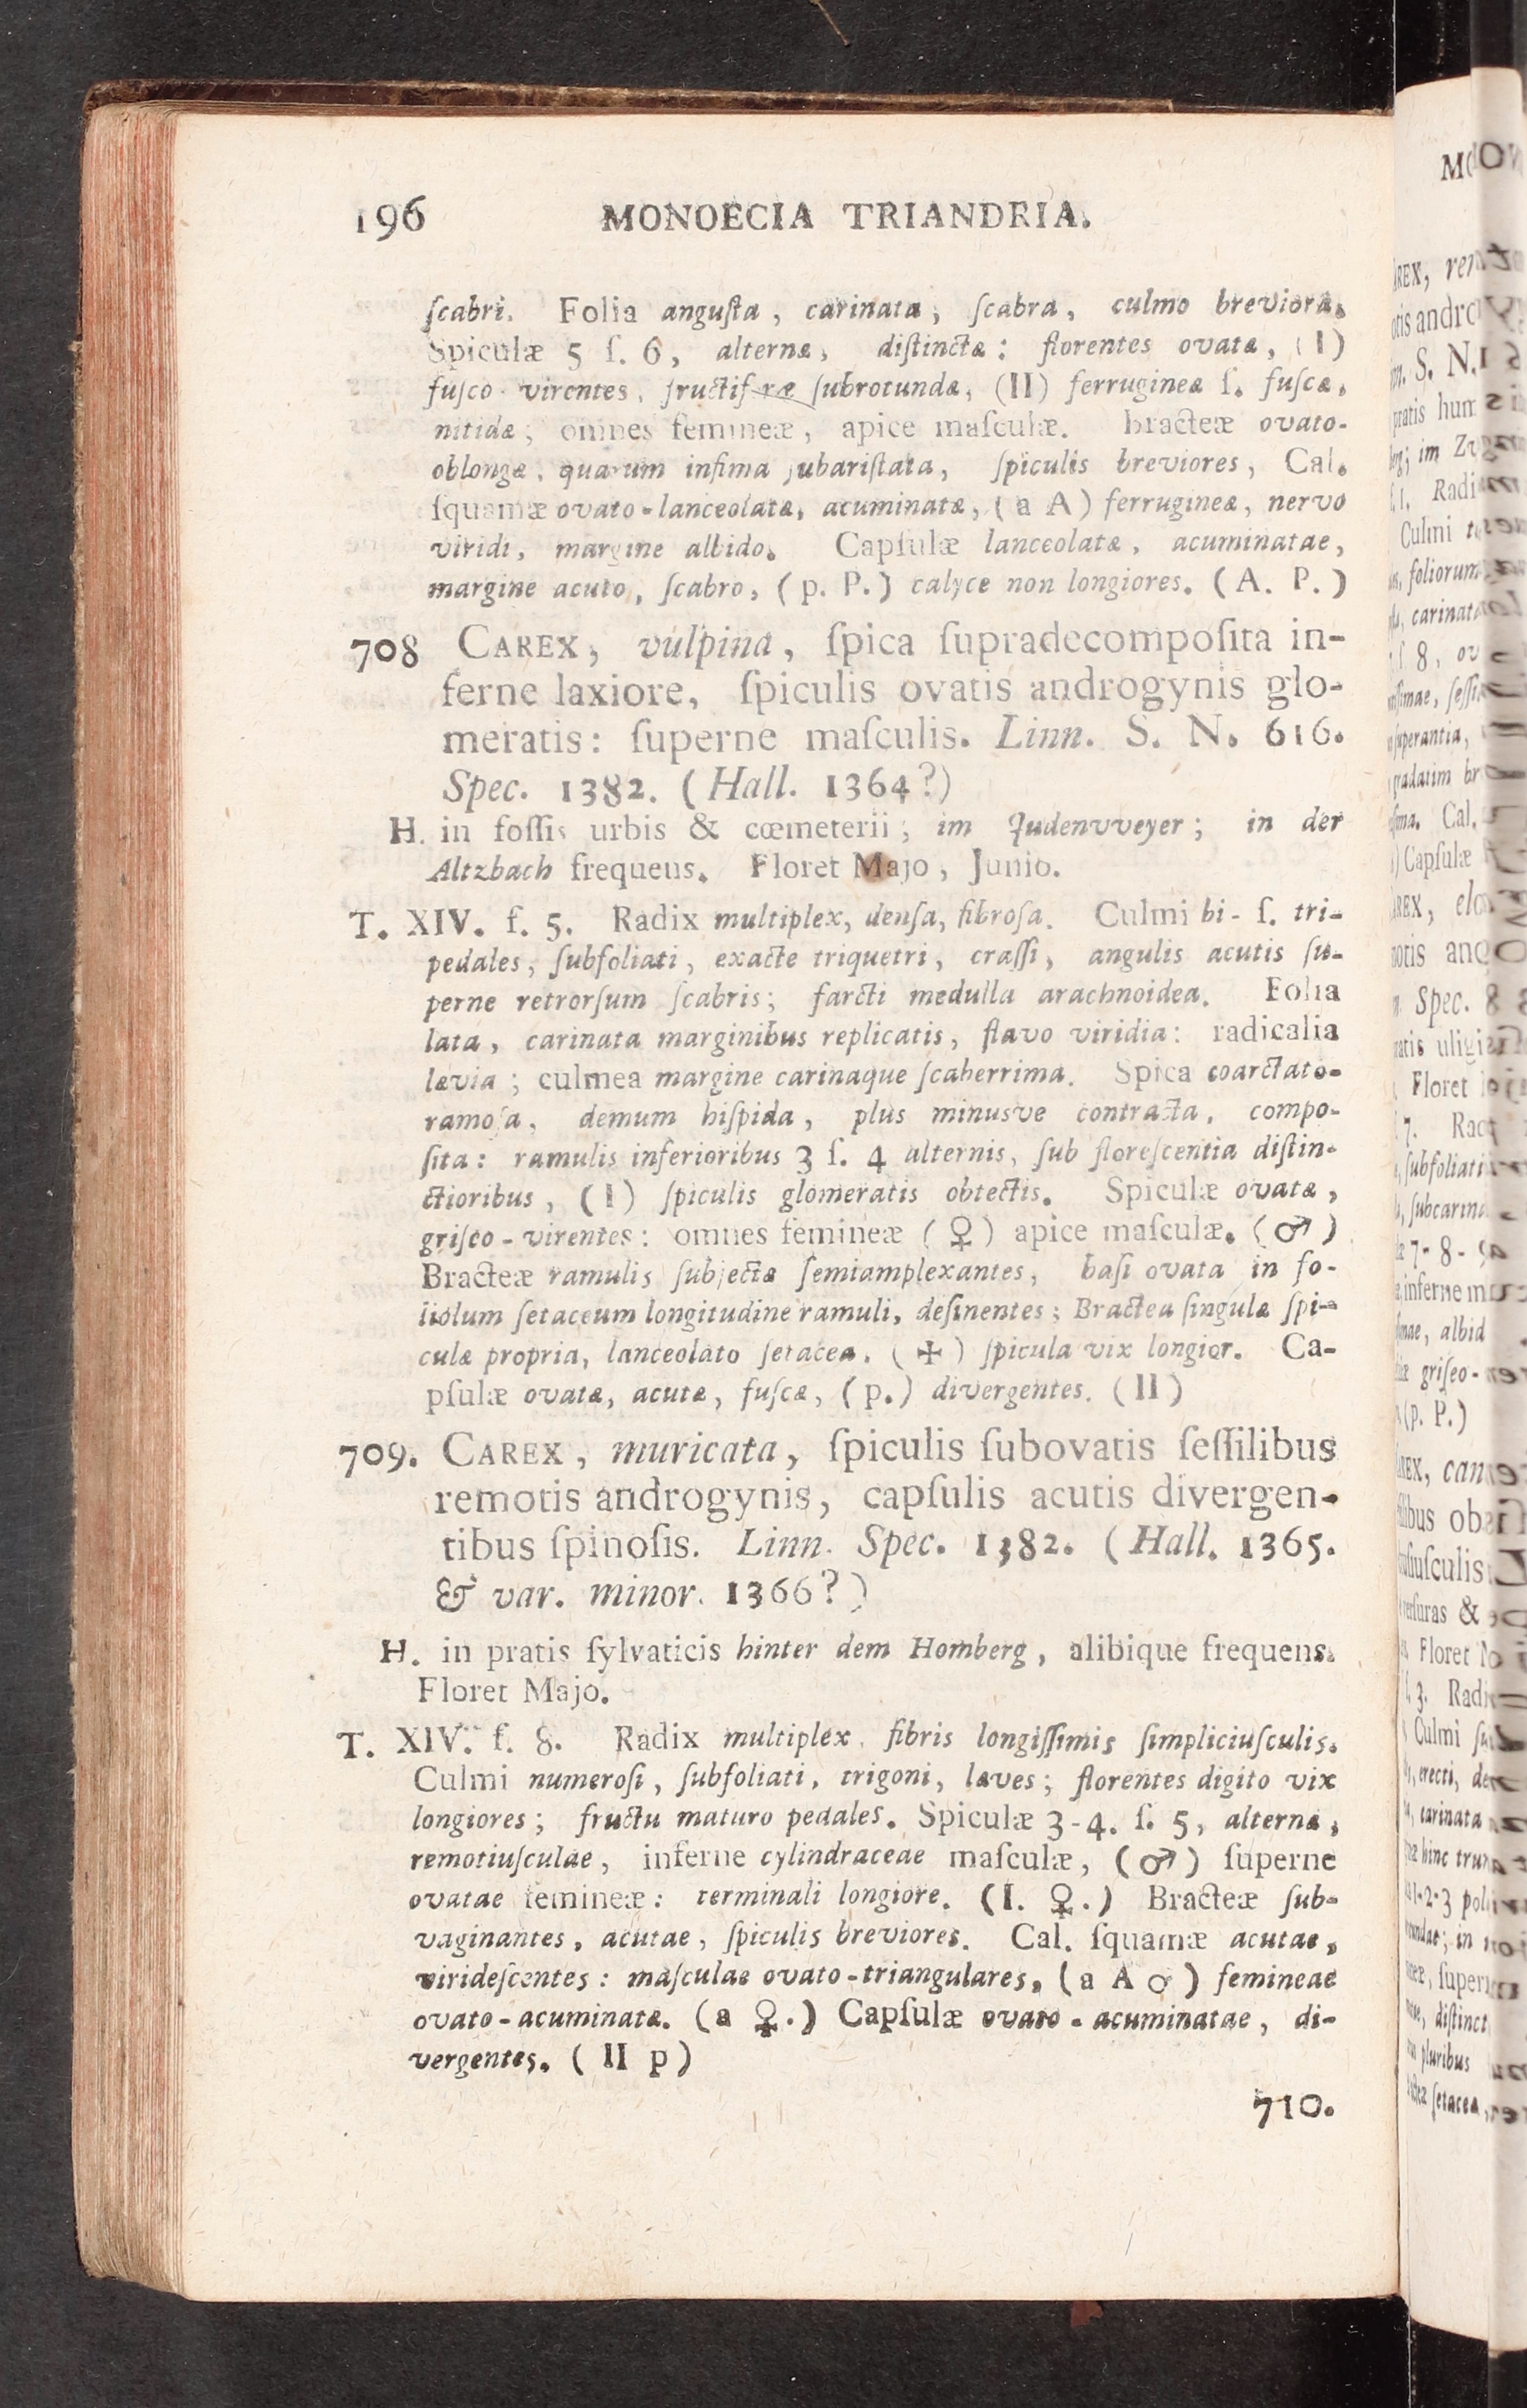 196 MONOECIA TRIANDRIA.
ſcabri. Folia anguſta, carinata, ſcabra, culmo breviora.
Spiculæ 5 ſ. 6, alternæ, diſtinctæ: florentes ovatæ, (I)
fuſco-virentes, fructiferæ ſubrotundæ, (II) ferrugineæ ſ. fuſcæ,
nitidæ; omnes femineæ, apice maſculæ. Bracteæ ovato-
oblongæ, quarum infima ſubariſtata, ſpiculis breviores, Cal.
ſquamæ ovato-lanceolatæ, acuminatæ, (a A) ferrugineæ, nervo
viridi, margine albido. Capſulæ lanceolatæ, acuminatae,
margine acuto, ſcabro, (p. P.) calyce non longiores. (A. P.)
708 CAREX, vulpina, ſpica ſupradecompoſita in-
ferne laxiore, ſpiculis ovatis androgynis glo-
meratis: ſuperne maſculis. Linn. S. N. 616.
Spec. 1382. (Hall. 1364?)
H. in foſſis urbis & cœmeterii; im Judenvveyer; in der
Altzbach frequens. Floret Majo, Junio.
T. XIV. f. 5. Radix multiplex, denſa, fibroſa. Culmi bi- ſ. tri-
pedales, ſubfoliati, exacte triquetri, craſſi, angulis acutis ſu-
perne retrorſum ſcabris; farcti medulla arachnoidea. Folia
lata, carinata marginibus replicatis, flavo viridia: radicalia
lævia; culmea margine carinaque ſcaberrima. Spica coarctato-
ramoſa, demum hiſpida, plus minusve contracta, compo-
ſita: ramulis inferioribus 3 ſ. 4 alternis, ſub floreſcentia diſtin-
ctioribus, (I) ſpiculis glomeratis obtectis. Spiculæ ovatæ,
griſeo-virentes: omnes femineæ (♀) apice maſculæ. (♂)
Bracteæ ramulis ſubjectæ ſemiamplexantes, baſi ovata in fo-
liolum ſetaceum longitudine ramuli, deſinentes; Bractea ſingulæ ſpi-
culæ propria, lanceolato ſetacea, (✠) ſpicula vix longior. Ca-
pſulæ ovatæ, acutæ, fuſcæ, (p.) divergentes. (II)
709. CAREX, muricata, ſpiculis ſubovatis ſeſſilibus
remotis androgynis, capſulis acutis divergen-
tibus ſpinoſis. Linn. Spec. 1382. (Hall. 1365.
& var. minor. 1366?)
H. in pratis ſylvaticis hinter dem Homberg, alibique frequens.
Floret Majo.
T. XIV. f. 8. Radix multiplex, fibris longiſſimis ſimpliciuſculis.
Culmi numeroſi, ſubfoliati, trigoni, læves; florentes digito vix
longiores; fructu maturo pedales. Spiculæ 3-4. ſ. 5, alternæ,
remotiuſculae, inferne cylindraceae maſculæ, (♂) ſuperne
ovatae femineæ: terminali longiore. (I. ♀.) Bracteæ ſub-
vaginantes, acutae, ſpiculis breviores. Cal. ſquamæ acutae,
virideſcentes: maſculae ovato-triangulares, (a A ♂) femineae
ovato-acuminatæ. (a ♀.) Capſulæ ovato-acuminatae, di-
vergentes. (II p)
710.